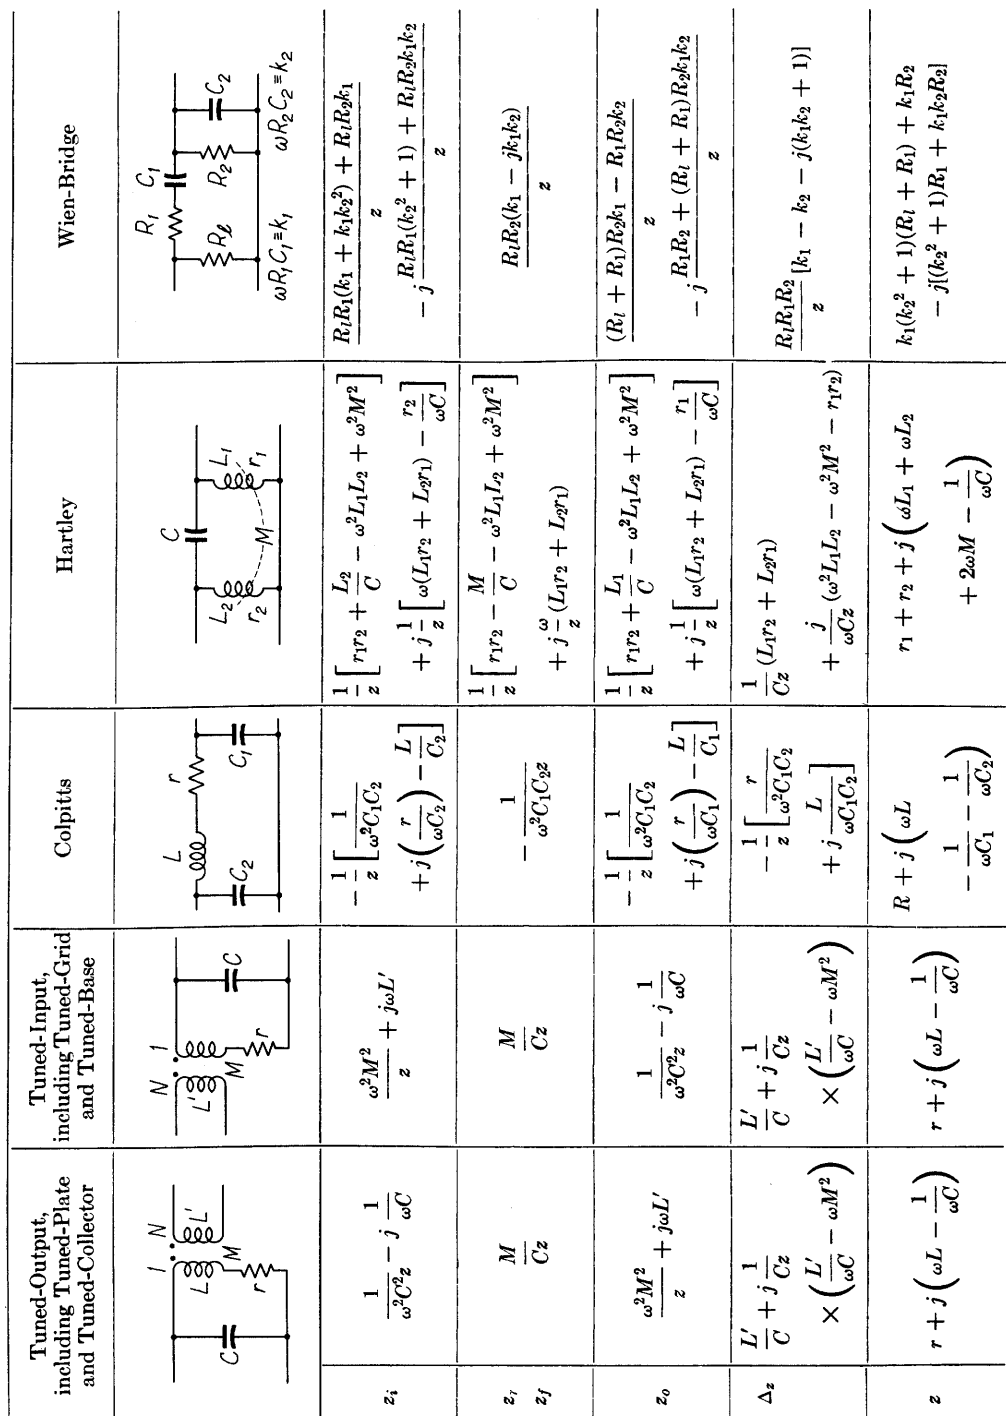 Tuned-Output,
including Tuned-Plate
and Tuned-Collector
Tuned-Input,
including Tuned-Grid
and Tuned-Base
Colpitts
Hartley
Wien-Bridge
1 N
L L'
M
r
C
N 1
L'
M
r
C
L r
C₂ C₁
C
L₂ L₁
r₂ M r₁
R₁ C₁
Rℓ R₂ C₂
ωR₁C₁≡k₁ ωR₂C₂≡k₂
zᵢ
1/(ω²C²z) − j 1/(ωC)
ω²M²/z + jωL'
−1/z [1/(ω²C₁C₂)
+ j(r/(ωC₂)) − L/C₂]
1/z [r₁r₂ + L₂/C − ω²L₁L₂ + ω²M²]
+ j 1/z [ω(L₁r₂ + L₂r₁) − r₂/(ωC)]
RₗR₁(k₁ + k₁k₂²) + RₗR₂k₁ / z
− j RₗR₁(k₂² + 1) + RₗR₂k₁k₂ / z
zᵣ z_f
M/(Cz)
M/(Cz)
−1/(ω²C₁C₂z)
1/z [r₁r₂ − M/C − ω²L₁L₂ + ω²M²]
+ j ω/z (L₁r₂ + L₂r₁)
RₗR₂(k₁ − jk₁k₂) / z
zₒ
ω²M²/z + jωL'
1/(ω²C²z) − j 1/(ωC)
−1/z [1/(ω²C₁C₂)
+ j(r/(ωC₁)) − L/C₁]
1/z [r₁r₂ + L₁/C − ω²L₁L₂ + ω²M²]
+ j 1/z [ω(L₁r₂ + L₂r₁) − r₁/(ωC)]
(Rₗ + R₁)R₂k₁ − R₁R₂k₂ / z
− j R₁R₂ + (Rₗ + R₁)R₂k₁k₂ / z
Δ_z
L'/C + j 1/(Cz)
× (L'/(ωC) − ωM²)
L'/C + j 1/(Cz)
× (L'/(ωC) − ωM²)
−1/z [r/(ω²C₁C₂)
+ j L/(ωC₁C₂)]
1/(Cz) (L₁r₂ + L₂r₁)
+ j/(ωCz) (ω²L₁L₂ − ω²M² − r₁r₂)
RₗR₁R₂/z [k₁ − k₂ − j(k₁k₂ + 1)]
z
r + j(ωL − 1/(ωC))
r + j(ωL − 1/(ωC))
R + j(ωL
− 1/(ωC₁) − 1/(ωC₂))
r₁ + r₂ + j(ωL₁ + ωL₂
+ 2ωM − 1/(ωC))
k₁(k₂² + 1)(Rₗ + R₁) + k₁R₂
− j[(k₂² + 1)R₁ + k₁k₂R₂]